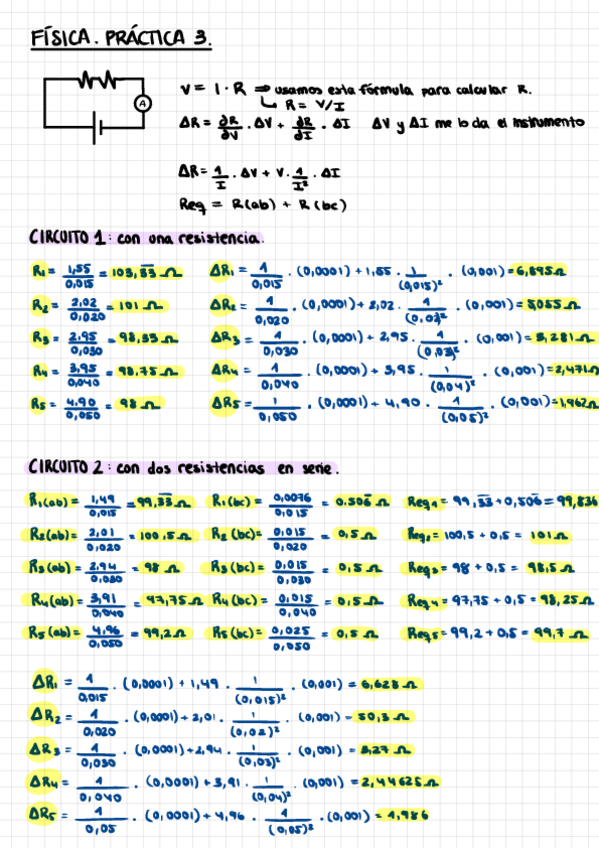 FÍSICA. PRÁCTICA 3.
A
V = I · R ⇒ usamos esta fórmula para calcular R.
↳ R = V/I
ΔR = ∂R/∂V · ΔV + ∂R/∂I · ΔI ΔV y ΔI me lo da el instrumento
ΔR = 1/I · ΔV + V · 1/I² · ΔI
Req = R(ab) + R(bc)
CIRCUITO 1: con una resistencia.
R₁ = 1,55/0,015 = 103,33 Ω ΔR₁ = 1/0,015 · (0,0001) + 1,55 · 1/(0,015)² · (0,001) = 6,895 Ω
R₂ = 2,02/0,020 = 101 Ω ΔR₂ = 1/0,020 · (0,0001) + 2,02 · 1/(0,02)² · (0,001) = 5,055 Ω
R₃ = 2,95/0,030 = 98,33 Ω ΔR₃ = 1/0,030 · (0,0001) + 2,95 · 1/(0,03)² · (0,001) = 3,281 Ω
R₄ = 3,95/0,040 = 98,75 Ω ΔR₄ = 1/0,040 · (0,0001) + 3,95 · 1/(0,04)² · (0,001) = 2,471 Ω
R₅ = 4,90/0,050 = 98 Ω ΔR₅ = 1/0,050 · (0,0001) + 4,90 · 1/(0,05)² · (0,001) = 1,962 Ω
CIRCUITO 2: con dos resistencias en serie.
R₁(ab) = 1,49/0,015 = 99,33 Ω R₁(bc) = 0,0076/0,015 = 0.506 Ω Req₁ = 99,33 + 0,506 = 99,836
R₂(ab) = 2,01/0,020 = 100,5 Ω R₂(bc) = 0,015/0,020 = 0,5 Ω Req₂ = 100,5 + 0,5 = 101 Ω
R₃(ab) = 2,94/0,030 = 98 Ω R₃(bc) = 0,015/0,030 = 0,5 Ω Req₃ = 98 + 0,5 = 98,5 Ω
R₄(ab) = 3,91/0,040 = 97,75 Ω R₄(bc) = 0,015/0,040 = 0,5 Ω Req₄ = 97,75 + 0,5 = 98,25 Ω
R₅(ab) = 4,96/0,050 = 99,2 Ω R₅(bc) = 0,025/0,050 = 0,5 Ω Req₅ = 99,2 + 0,5 = 99,7 Ω
ΔR₁ = 1/0,015 · (0,0001) + 1,49 · 1/(0,015)² · (0,001) = 6,628 Ω
ΔR₂ = 1/0,020 · (0,0001) + 2,01 · 1/(0,02)² · (0,001) = 50,3 Ω
ΔR₃ = 1/0,030 · (0,0001) + 2,94 · 1/(0,03)² · (0,001) = 3,27 Ω
ΔR₄ = 1/0,040 · (0,0001) + 3,91 · 1/(0,04)² · (0,001) = 2,44625 Ω
ΔR₅ = 1/0,05 · (0,0001) + 4,96 · 1/(0,05)² · (0,001) = 1,986